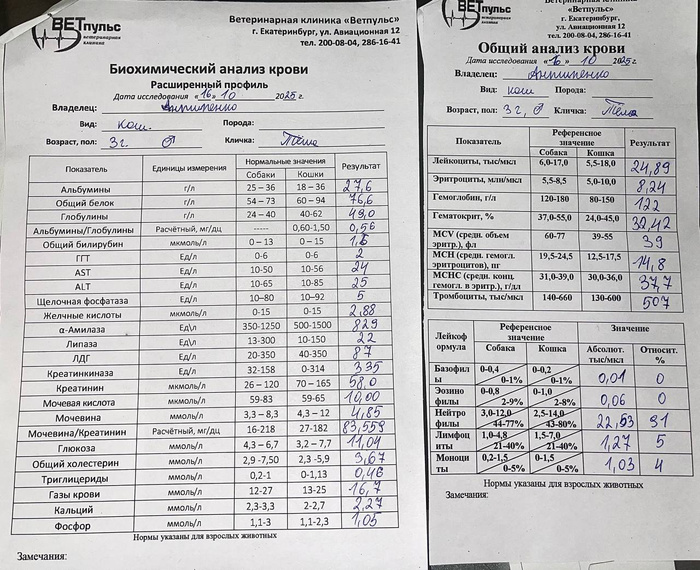 ВЕТпульс
ветеринарная клиника
Ветеринарная клиника «Ветпульс»
г. Екатеринбург, ул. Авиационная 12
тел. 200-08-04, 286-16-41
Биохимический анализ крови
Расширенный профиль
Дата исследования «16» 10 2025 г.
Владелец: Антипенко
Вид: кош. Порода:
Возраст, пол: 3 г. ♂ Кличка: Тёма
Показатель Единицы измерения Нормальные значения Результат
Собаки Кошки
Альбумины г/л 25 – 36 18 – 36 27,6
Общий белок г/л 54 – 73 60 – 94 76,6
Глобулины г/л 24 – 40 40-62 49,0
Альбумины/Глобулины Расчётный, мг/дц ----- 0,60-1,50 0,56
Общий билирубин мкмоль/л 0 – 13 0 – 15
ГГТ Ед/л 0-6 0-6 2
AST Ед/л 10-50 10-56 24
ALT Ед/л 10-65 10-85 25
Щелочная фосфатаза Ед/л 10–80 10–92 5
Желчные кислоты мкмоль/л 0-15 0-15 2,88
α-Амилаза Ед\л 350-1250 500-1500 829
Липаза Ед\л 13-300 10-150 22
ЛДГ Ед/л 20-350 40-350 87
Креатинкиназа Ед/л 32-158 0-314 335
Креатинин мкмоль/л 26 – 120 70 – 165 58,0
Мочевая кислота мкмоль/л 59-83 59-65 10,00
Мочевина ммоль/л 3,3 – 8,3 4,3 – 12 4,85
Мочевина/Креатинин Расчётный, мг/дц 16-218 27-182 83,559
Глюкоза ммоль/л 4,3 – 6,7 3,2 – 7,7 11,04
Общий холестерин ммоль/л 2,9 -7,50 2,3 -5,9 3,67
Триглицериды ммоль/л 0,2-1 0-1,13 0,46
Газы крови ммоль/л 12-27 13-25 16,7
Кальций ммоль/л 2,3-3,3 2-2,7 2,27
Фосфор ммоль/л 1,1-3 1,1-2,3 1,05
Нормы указаны для взрослых животных
Замечания:
ВЕТпульс
ветеринарная клиника
Ветеринарная клиника
«Ветпульс»
г. Екатеринбург,
ул. Авиационная 12
тел. 200-08-04, 286-16-41
Общий анализ крови
Дата исследования «16» 10 2025 г.
Владелец: Антипенко
Вид: кош Порода:
Возраст, пол: 3 г, ♂ Кличка: Тёма
Показатель Референсное значение Результат
Собака Кошка
Лейкоциты, тыс/мкл 6,0-17,0 5,5-18,0 24,89
Эритроциты, млн/мкл 5,5-8,5 5,0-10,0 8,24
Гемоглобин, г/л 120-180 80-150 122
Гематокрит, % 37,0-55,0 24,0-45,0 32,42
MCV (средн. объем эритр.), фл 60-77 39-55 39
МСН (средн. гемогл. эритроцитов), пг 19,5-24,5 12,5-17,5 14,8
МСНС (средн. конц. гемогл. в эритр.), г/дл 31,0-39,0 30,0-36,0 37,7
Тромбоциты, тыс/мкл 140-660 130-600 507
Лейкоформула Референсное значение Значение
Собака Кошка Абсолют. тыс/мкл Относит. %
Базофилы 0-0,4 0-1% 0-0,2 0-1% 0,01 0
Эозинофилы 0-0,8 2-9% 0-1,0 2-8% 0,06 0
Нейтрофилы 3,0-12,0 44-77% 2,5-14,0 43-80% 22,53 91
Лимфоциты 1,0-4,8 21-40% 1,5-7,0 21-40% 1,27 5
Моноциты 0,2-1,5 0-5% 0-1,5 0-5% 1,03 4
Нормы указаны для взрослых животных
Замечания: